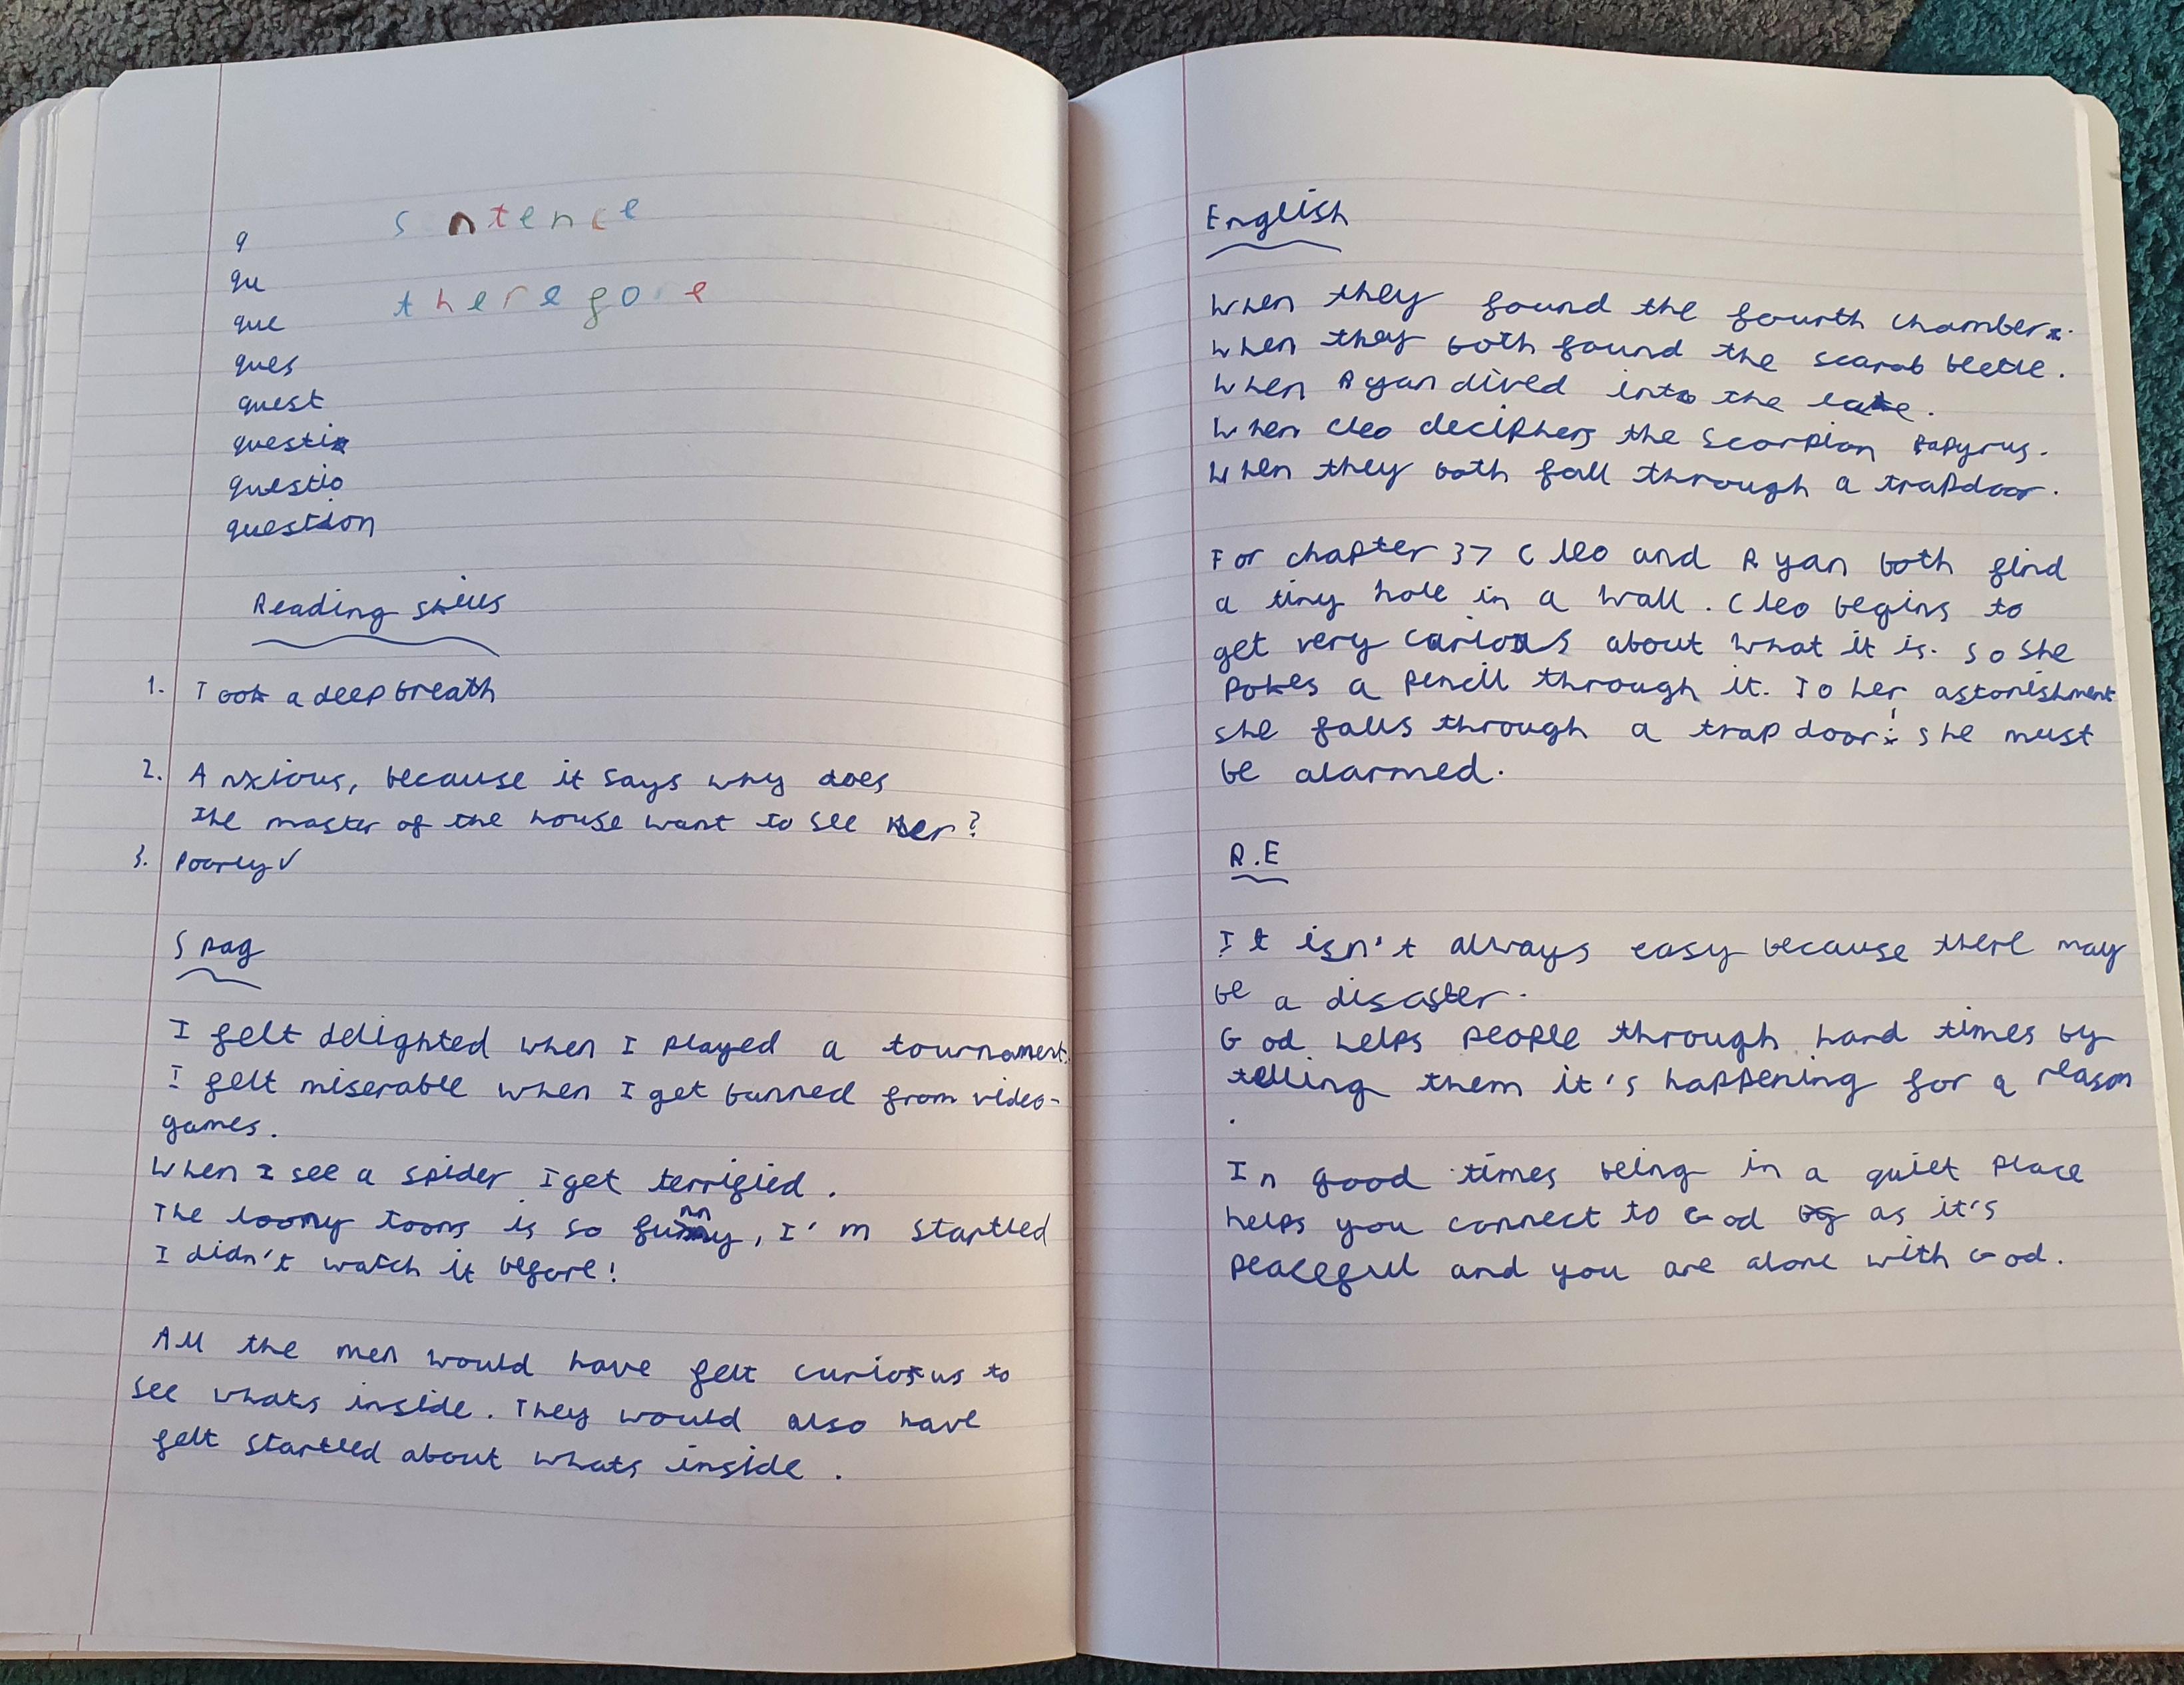 s ntence
therefo e
q
qu
que
ques
quest
questi
questio
question
Reading skills
1. Took a deep breath
2. Anxious, because it says why does
the master of the house want to see her?
3. Poorly ✓
Spag
I felt delighted when I played a tournament.
I felt miserable when I get banned from video-
games.
When I see a spider I get terrified.
The loony toons is so funny, I'm startled
I didn't watch it before!
All the men would have felt curious to
see whats inside. They would also have
felt startled about whats inside.
English
When they found the fourth chamber.
When they both found the scarab beetle.
When Ryan dived into the lake.
When Cleo deciphers the Scorpion Papyrus.
When they both fall through a trapdoor.
For chapter 37 Cleo and Ryan both find
a tiny hole in a wall. Cleo begins to
get very curious about what it is. So she
pokes a pencil through it. To her astonishment
she falls through a trap door! she must
be alarmed.
R.E
It isn't always easy because there may
be a disaster.
God helps people through hard times by
telling them it's happening for a reason
.
In good times being in a quiet place
helps you connect to God as it's
peaceful and you are alone with God.